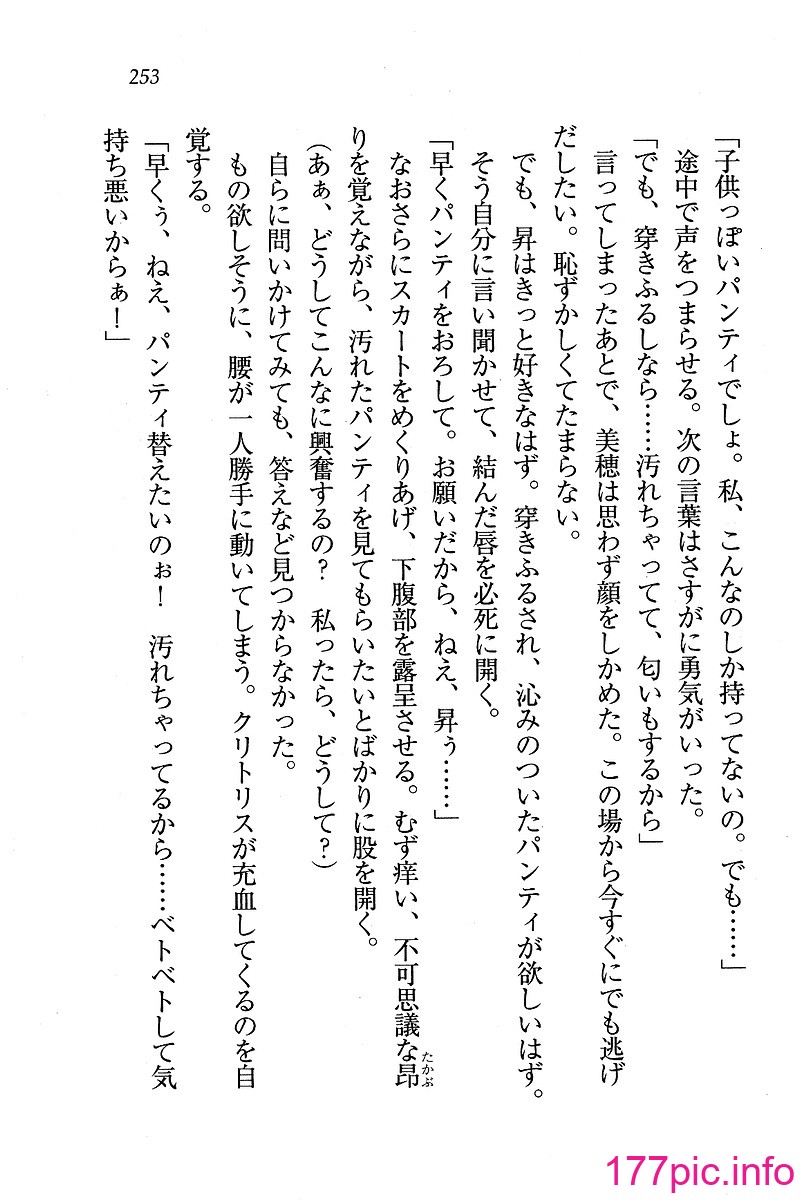 253
「子供っぽいパンティでしょ。私、こんなのしか持ってないの。でも……」
途中で声をつまらせる。次の言葉はさすがに勇気がいった。
「でも、穿きふるしなら……汚れちゃってて、匂いもするから」
言ってしまったあとで、美穂は思わず顔をしかめた。この場から今すぐにでも逃げ
だしたい。恥ずかしくてたまらない。
でも、昇はきっと好きなはず。穿きふるされ、沁みのついたパンティが欲しいはず。
そう自分に言い聞かせて、結んだ唇を必死に開く。
「早くパンティをおろして。お願いだから、ねえ、昇ぅ……」
なおさらにスカートをめくりあげ、下腹部を露呈させる。むず痒い、不可思議な昂たかぶ
りを覚えながら、汚れたパンティを見てもらいたいとばかりに股を開く。
(あぁ、どうしてこんなに興奮するの? 私ったら、どうして?)
自らに問いかけてみても、答えなど見つからなかった。
もの欲しそうに、腰が一人勝手に動いてしまう。クリトリスが充血してくるのを自
覚する。
「早くぅ、ねえ、パンティ替えたいのぉ! 汚れちゃってるから……ベトベトして気
持ち悪いからぁ!」
177pic.info